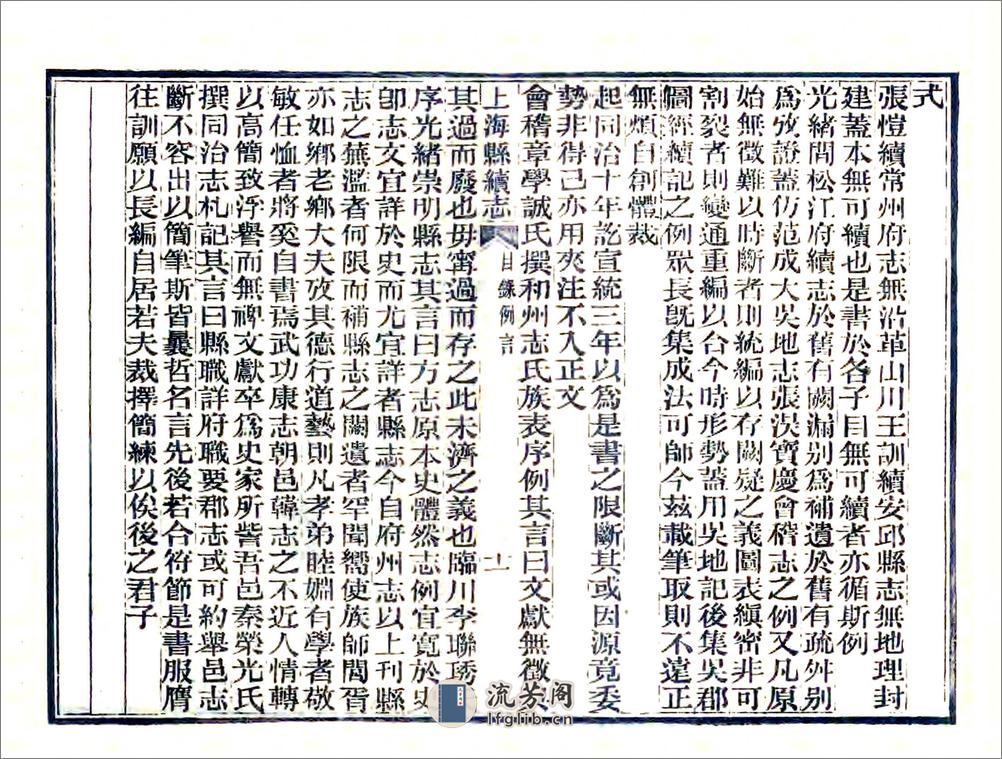 式
張愷續常州府志無沿革山川王訓續安邱縣志無地理封
建蓋本無可續也是書於各子目無可續者亦循斯例
光緒間松江府續志於舊有闕漏别爲補遺於舊有疏舛别
爲攷證蓋仿范成大吳地志張淏寶慶會稽志之例又凡原
始無徵難以時斷者則統編以存闕疑之義圖表縝密非可
割裂者則變通重編以合今時形勢蓋用吳地記後集吳郡
圖經續記之例眾長旣集成法可師今茲載筆取則不遠正
無煩自創體裁
起同治十年訖宣統三年以爲是書之限斷其或因源竟委
勢非得已亦用夾注不入正文
會稽章學誠氏撰和州志氏族表序例其言曰文獻無徵與
上海縣續志
目錄例言
十一
其過而廢也毋甯過而存之此未濟之義也臨川李聯琇
序光緒崇明縣志其言曰方志原本史體然志例宜寬於史
卽志文宜詳於史而尤宜詳者縣志今自府州志以上刊縣
志之蕪濫者何限而補縣志之闕遺者罕聞嚮使族師閭胥
亦如鄉老鄉大夫攷其德行道藝則凡孝弟睦婣有學者敬
敏任恤者將奚自書焉武功康志朝邑韓志之不近人情轉
以高簡致浮譽而無裨文獻卒爲史家所訾吾邑秦榮光氏
撰同治志札記其言曰縣職詳府職要郡志或可約舉邑志
斷不容出以簡筆斯皆曩哲名言先後若合符節是書服膺
往訓願以長編自居若夫裁擇簡練以俟後之君子
流芳阁
lfglib.cn